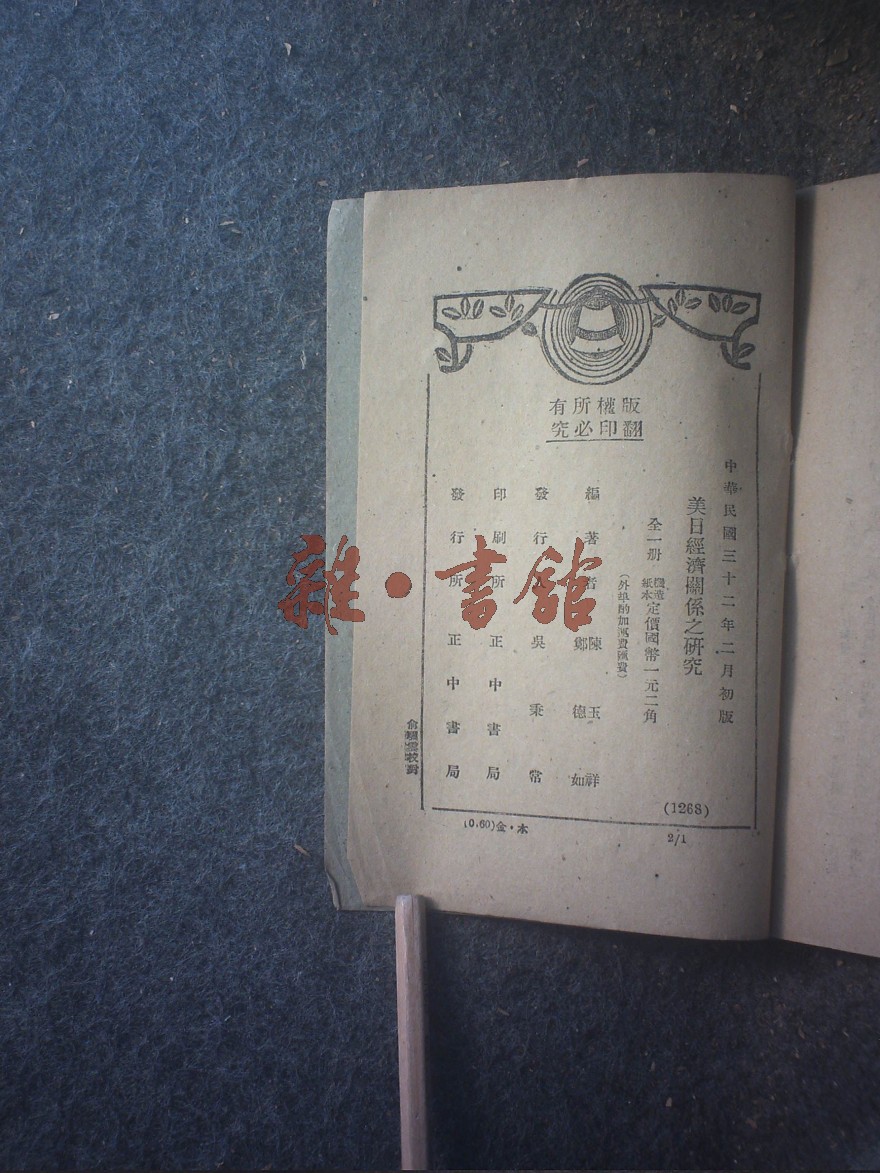 版權所有
翻印必究
中華民國三十二年二月初版
美日經濟關係之研究
全一册
紙本
定價國幣一元二角
(外埠酌加運費匯費)
編著者
陳玉祥
鄭德如
發行人 吳秉常
印刷所 正中書局
發行所 正中書局
(1268)
校對
2/1
(0.60)金·本
雜·書館